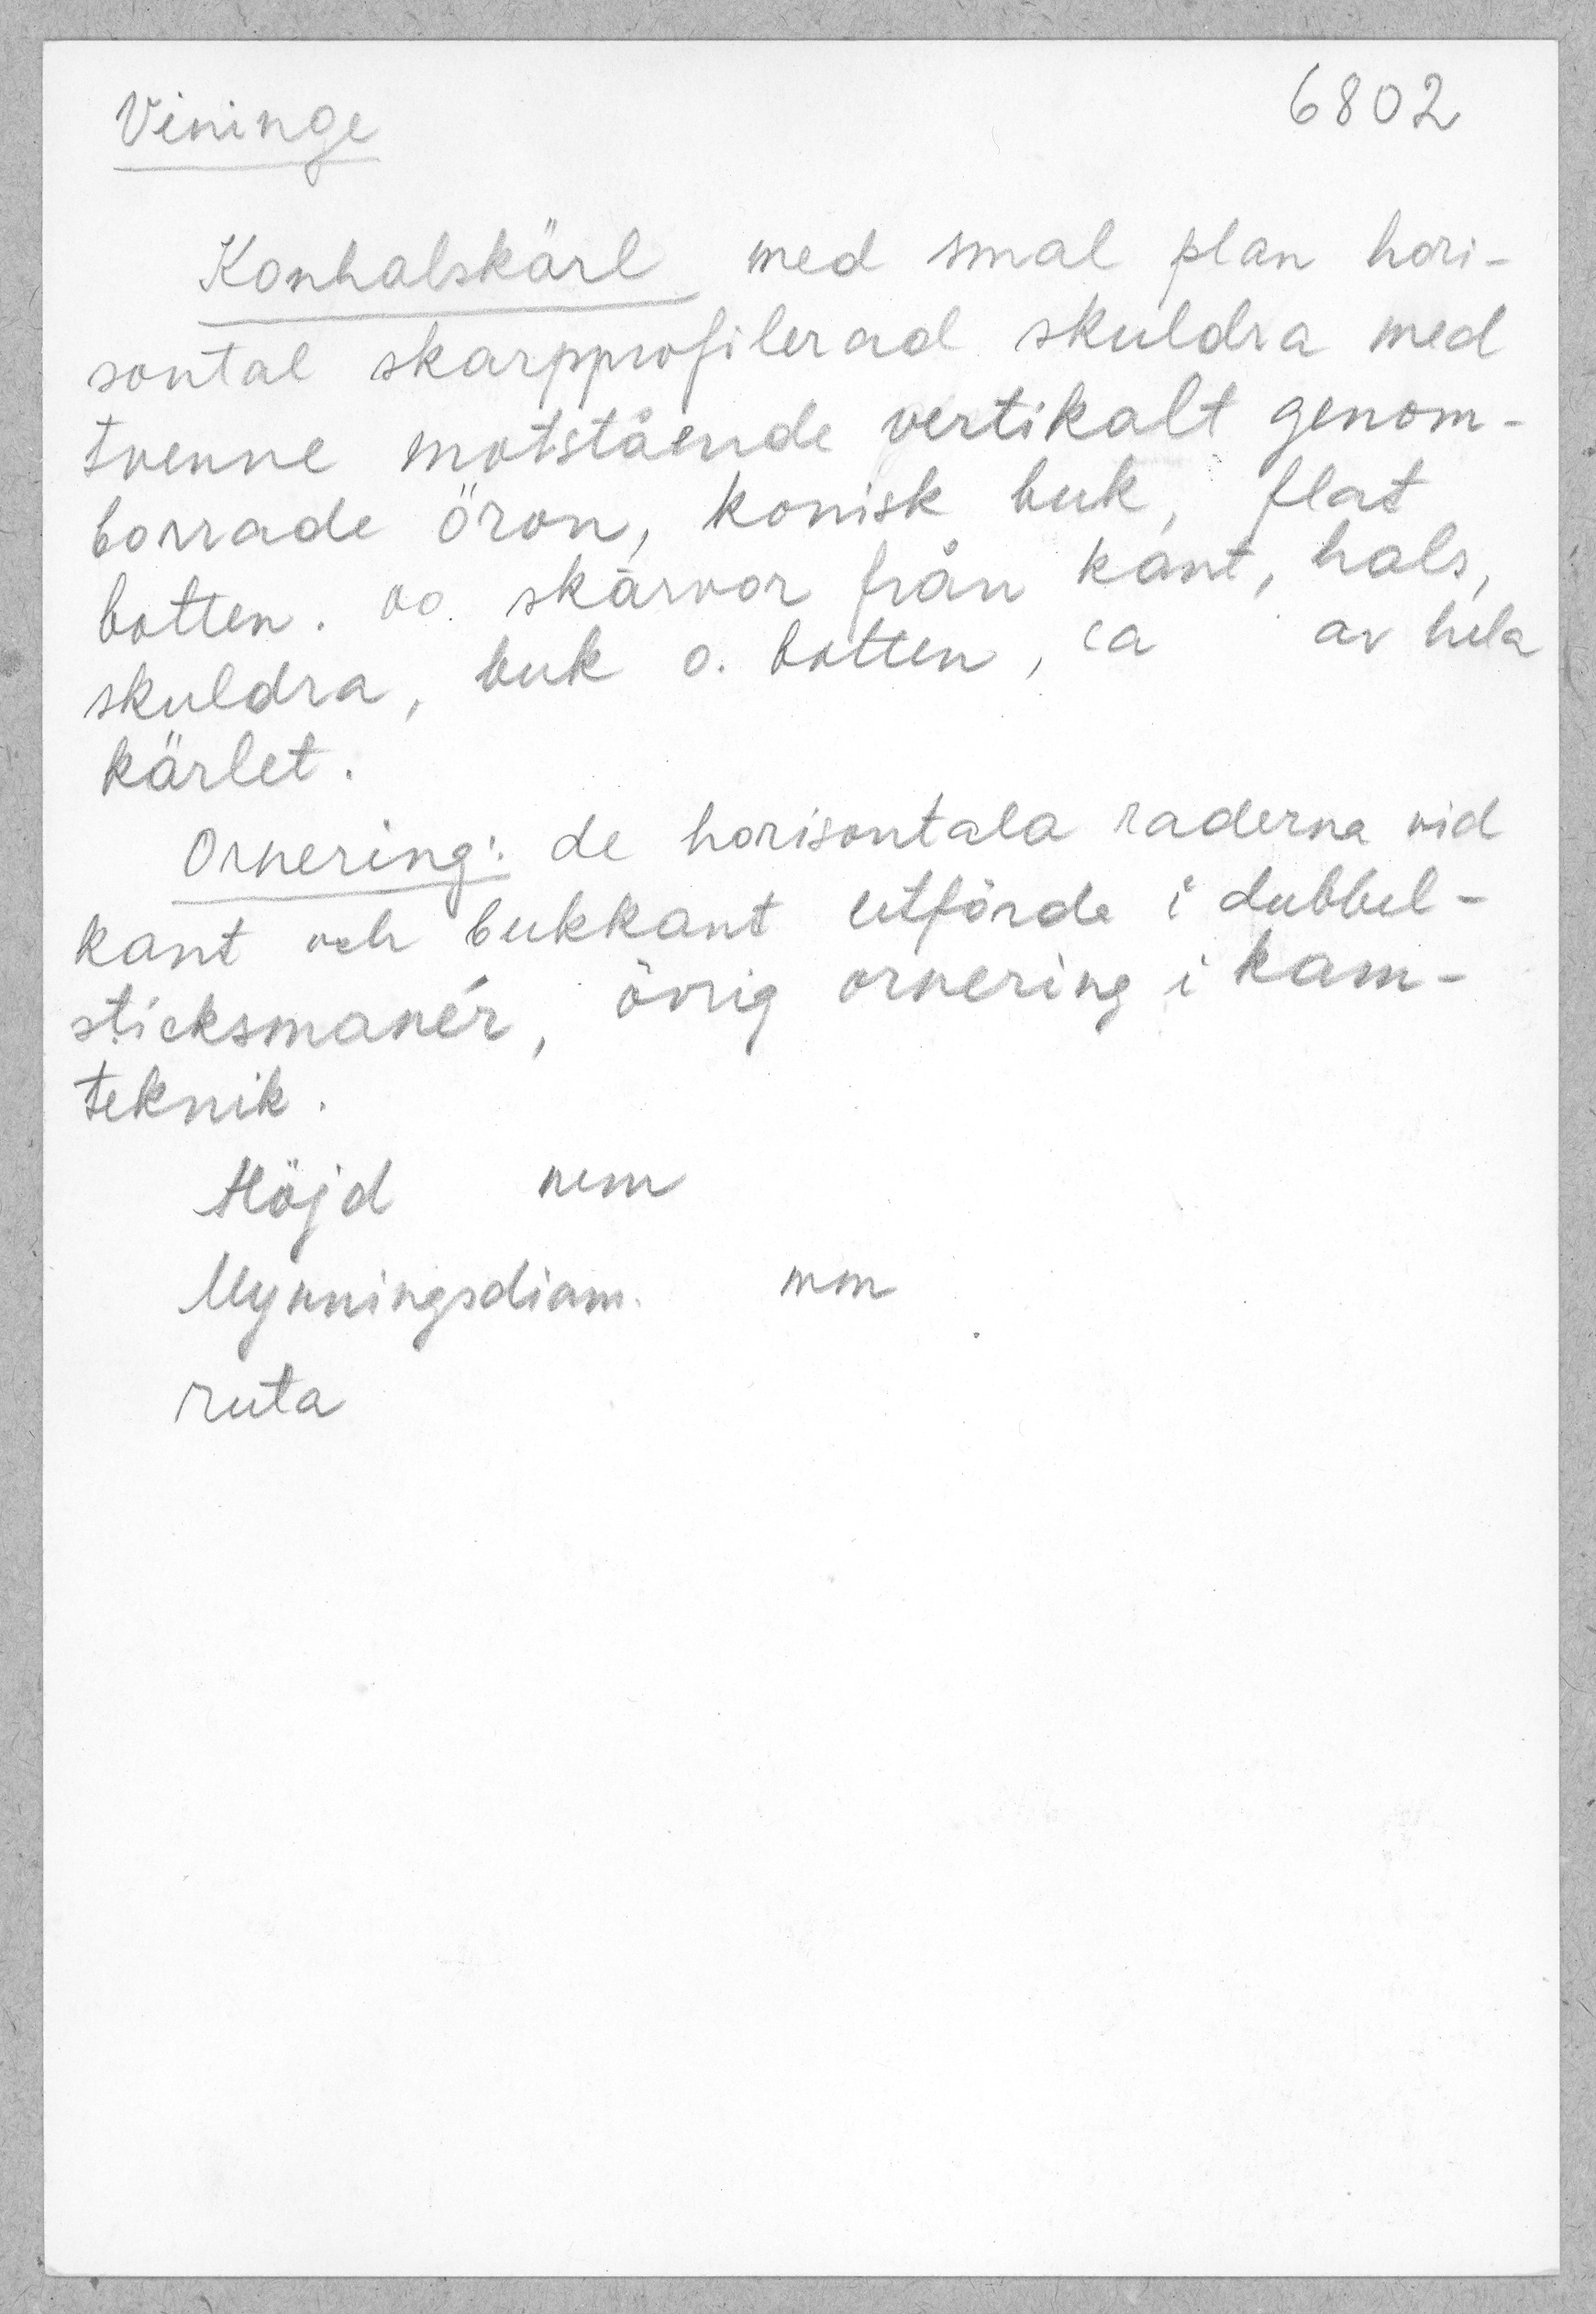 Vininge
6802
Konhalskärl med smal plan hori-
sontal skarpprofilerad skuldra med
tvenne motstående vertikalt genom-
borrade öron, konisk buk, flat
botten. skärvor från kant, hals,
skuldra, buk o. botten, ca av hela
kärlet.
Ornering: de horisontala raderna vid
kant och bukkant utförda i dubbel-
sticksmanér, övrig ornering i kam-
teknik.
Höjd mm
Mynningsdiam. mm
ruta